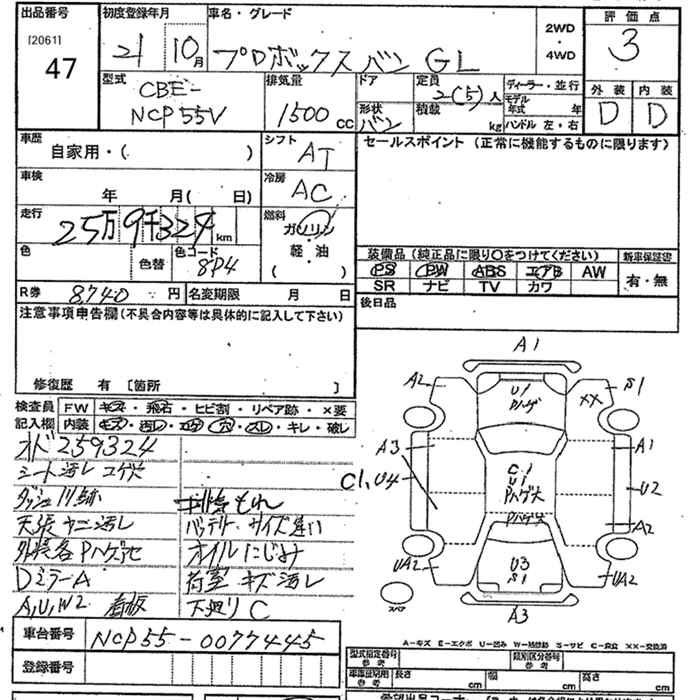 出品番号 初度登録年月 車名・グレード 2WD ・ 4WD 評価点
[2061]
47
21 10月 プロボックスバン GL 3
型式 排気量 ドア 定員 ディーラー・並行 外装 内装
CBE-
NCP55V 1500cc 2(5)人 モデル年式 年 D D
形状 バン 積載 kg ハンドル 左・右
車歴 自家用・( ) シフト AT セールスポイント(正常に機能するものに限ります)
車検 年 月( 日) 冷房 AC
走行 25万9千324km 燃料 ガソリン・軽油( )
色 色替 色コード 8P4
装備品(純正品に限り○をつけてください) 新車保証書
PS PW ABS エアB AW 有・無
SR ナビ TV カワ
R券 8740円 名変期限 月 日 後日品
注意事項申告欄(不具合内容等は具体的に記入して下さい)
修復歴 有 [箇所 ]
検査員記入欄 FW キズ・飛石・ヒビ割・リペア跡・×要
内装 キズ・汚レ・コゲ・穴・スレ・キレ・破レ
オド259324
シート汚レ コゲ穴
ダッシュ
天張ヤニ汚レ バッテリーサイズ違い
外装各Pハゲ オイルにじみ
DミラーA 荷室キズ汚レ
A,U,W2 看板 下廻りC
A1
A2 U1 Pハゲ XX S1
A3 A1
C1,U4 C1 U1 Pハゲ U2
Pハゲ A2
UA2 U3 S1 UA2
スペア A3
A-キズ E-エクボ U-凹み W-補修跡 S-サビ C-腐食 XX-交換済
車台番号 NCP55-0077445
登録番号
型式指定番号 参考 類別区分番号 参考
参考 長さ cm 幅 cm 高さ cm